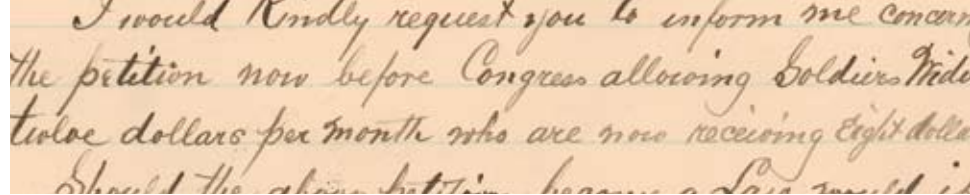 I would Kindly request you to inform me concern
the petition now before Congress allowing Soldiers Wido
twelve dollars per month who are now receiving Eight dolla
Should the above petition become a Law would i